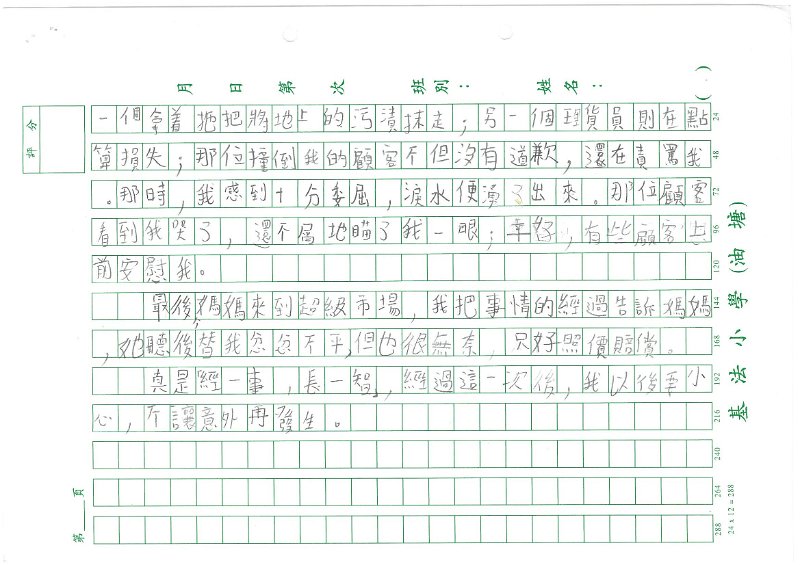 月 日 第 次 班別： 姓名： ( . )
評分
一個拿着拖把將地上的污漬抹走；另一個理貨員則在點 24
算損失；那位撞倒我的顧客不但沒有道歉，還在責罵我 48
。那時，我感到十分委屈，淚水便湧了出來。那位顧客 72
看到我哭了，還不屑地瞄了我一眼；幸好，有些顧客上 96
前安慰我。 120
最後，媽媽來到超級市場，我把事情的經過告訴媽媽 144
，她聽後替我忿忿不平，但也很無奈，只好照價賠償。 168
真是經一事，長一智，經過這一次後，我以後要小 192
心，不讓意外再發生。 216
240
264
288
第 頁
基法小學(油塘)
24 x 12 = 288